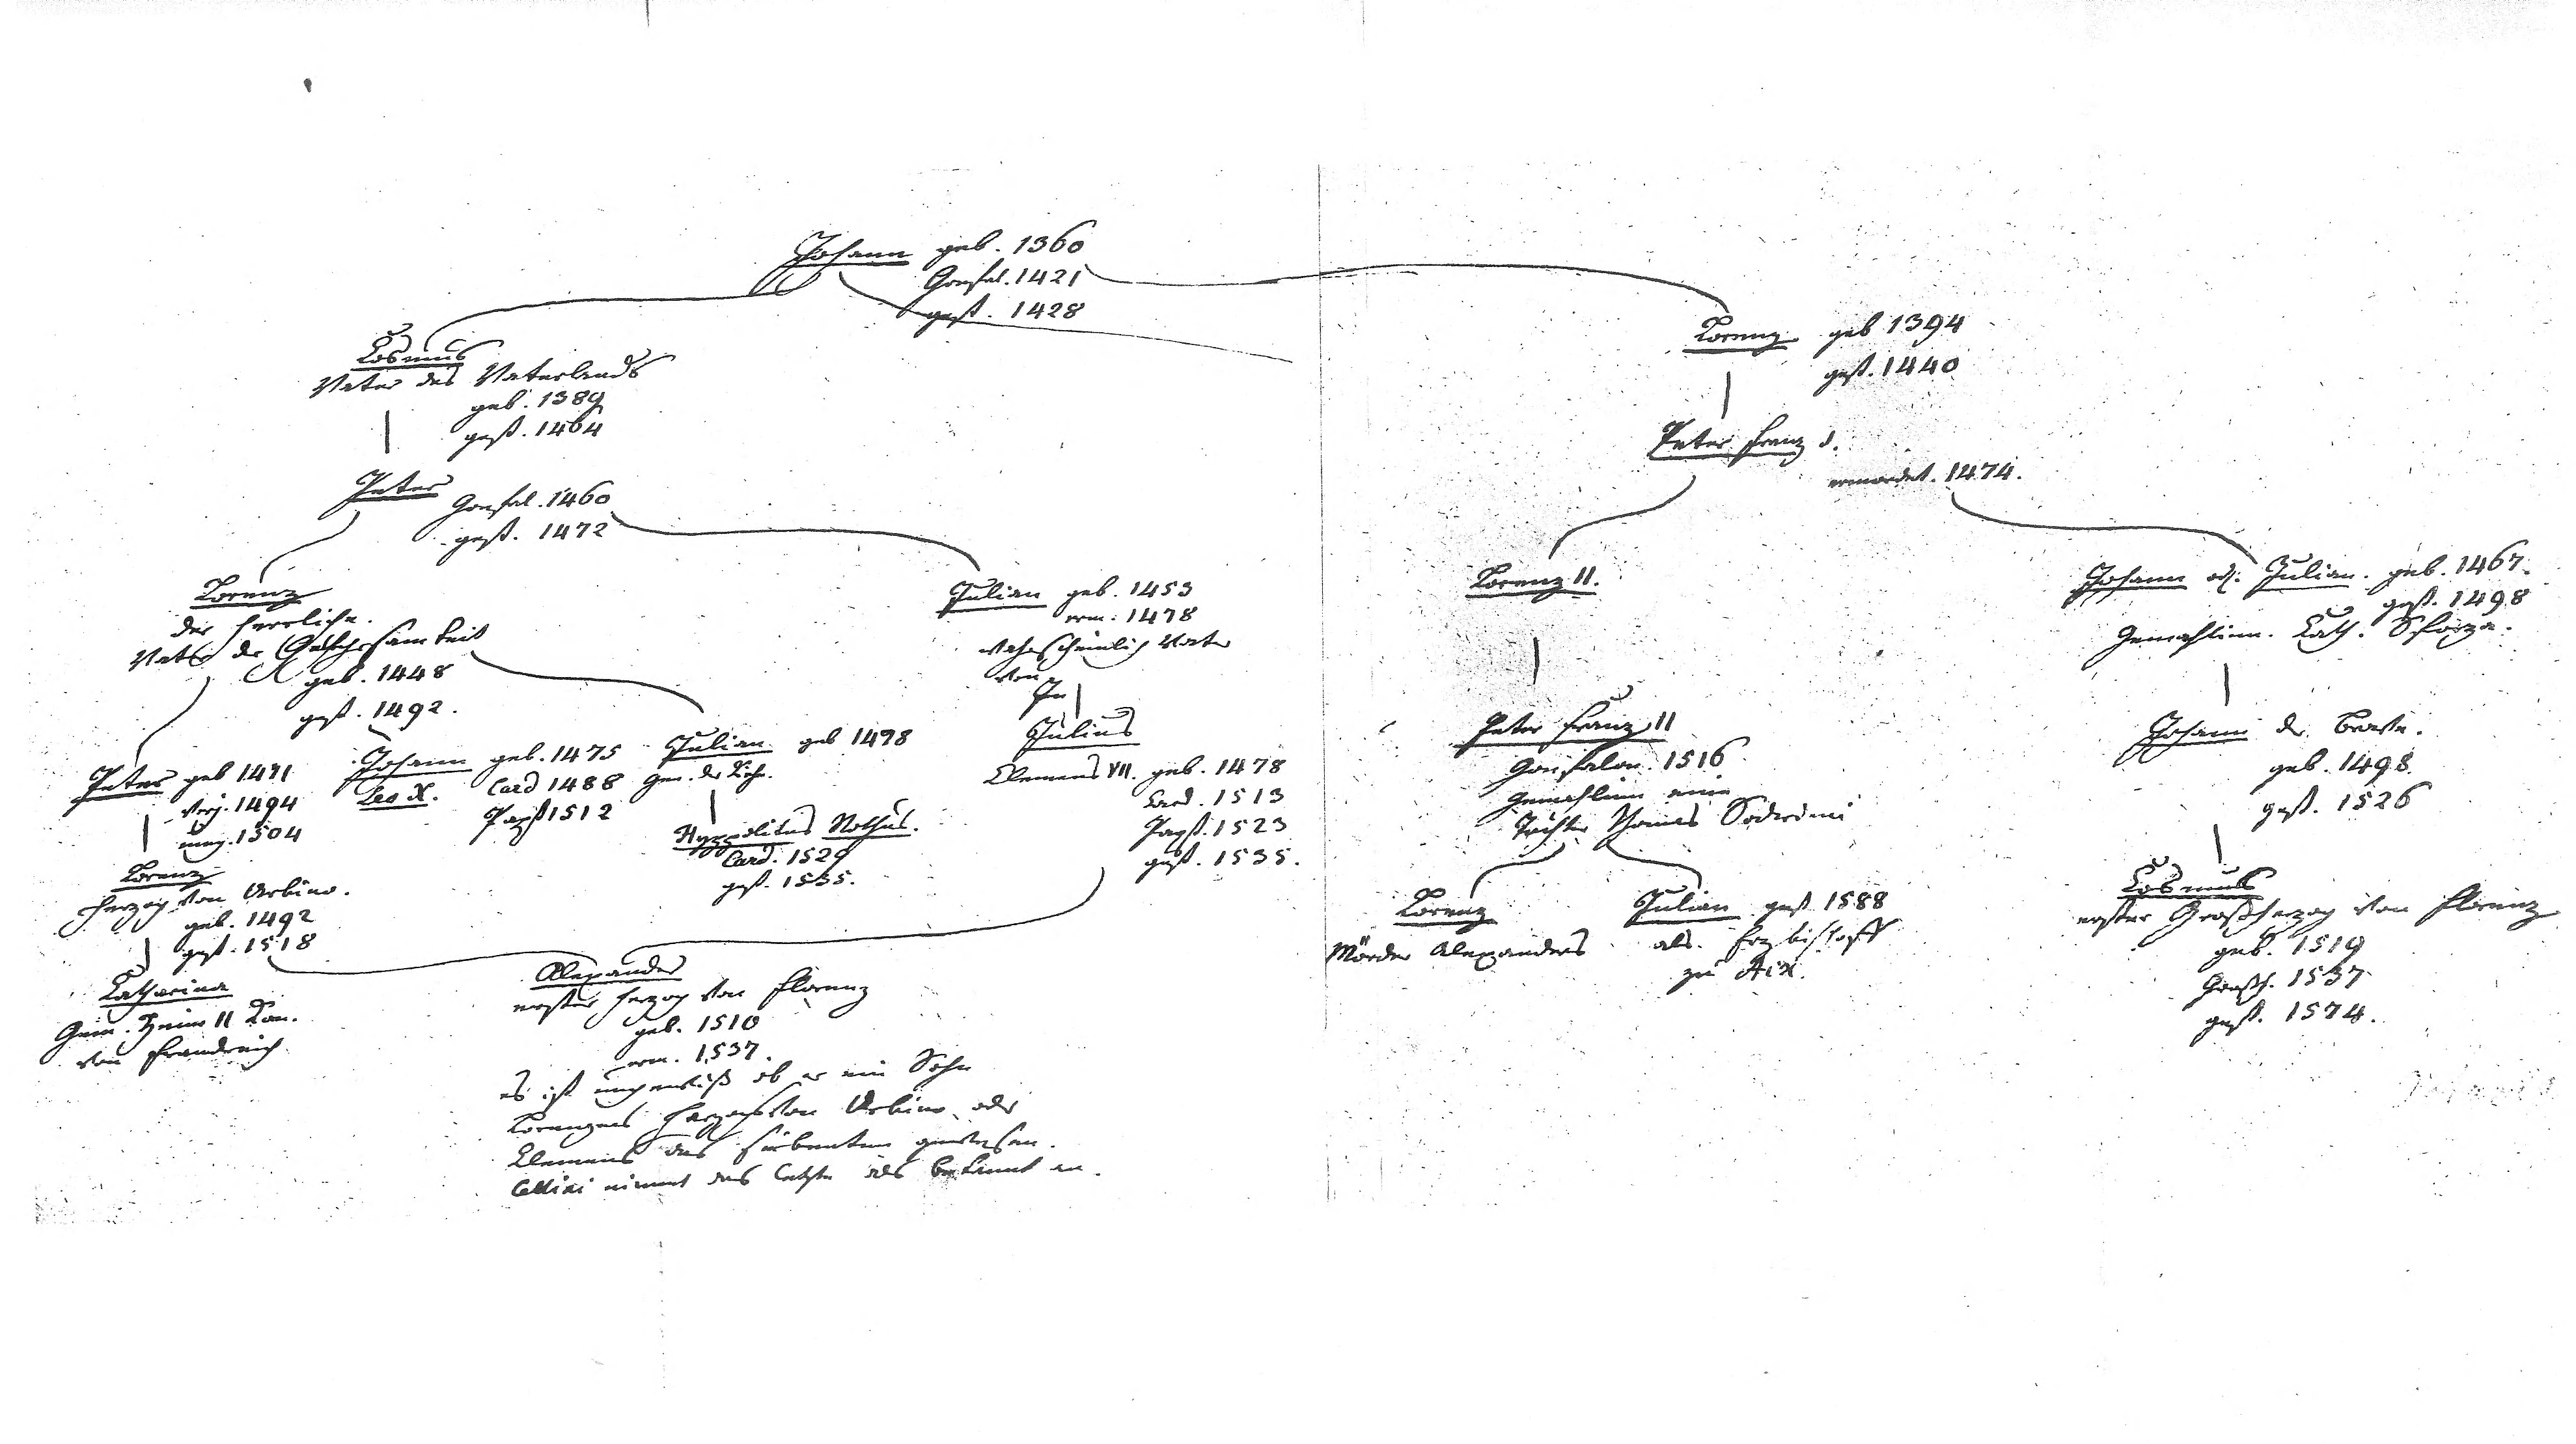 Johann geb. 1360
Gonfal. 1421
gest. 1428
Cosmus
Vater des Vaterlands
geb. 1389
gest. 1464
Lorenz geb 1394
gest. 1440
Peter Franz d.
ermordet. 1474.
Peter
Gonfal. 1460
gest. 1472
Lorenz
der herrliche.
Vater der Gelehrsamkeit
geb. 1448
gest. 1492.
Julian geb. 1453
erm. 1478
wahrscheinlich Vater
von
Lorenz II.
Johann od. Julian. geb. 1467.
gest. 1498
Gemahlinn. Cath. Sforza.
Peter geb 1471
verj. 1494
umg. 1504
Johann geb. 1475
Leo X. Card 1488
Papst 1512
Julian geb 1478
Gon. der Kirche.
Hyppolitus Nothus.
Card. 1529
gest. 1535.
Julius
Clemens VII. geb. 1478
Card. 1513
Papst. 1523
gest. 1535.
Peter Franz II
Gonfalon. 1516
Gemahlinn eine
Tochter Thomas Soderini
Johann der Brave.
geb. 1498.
gest. 1526
Lorenz
Herzog von Urbino.
geb. 1492
gest. 1518
Lorenz
Mörder Alexanders
Julian gest 1588
als. Erzbischoff
zu Aix.
Cosmus
erster Großherzog von Florenz
geb. 1519
Großh. 1537
gest. 1574.
Catharina
Gem. Heinr II Kön.
von Franckreich
Alexander
erster Herzog von Florenz
geb. 1510
erm. 1537.
es ist ungewiß ob er ein Sohn
Lorenzens Herzogs von Urbino oder
Clemens des siebenten gewesen.
Cellini nimmt das letzte als bekannt an.